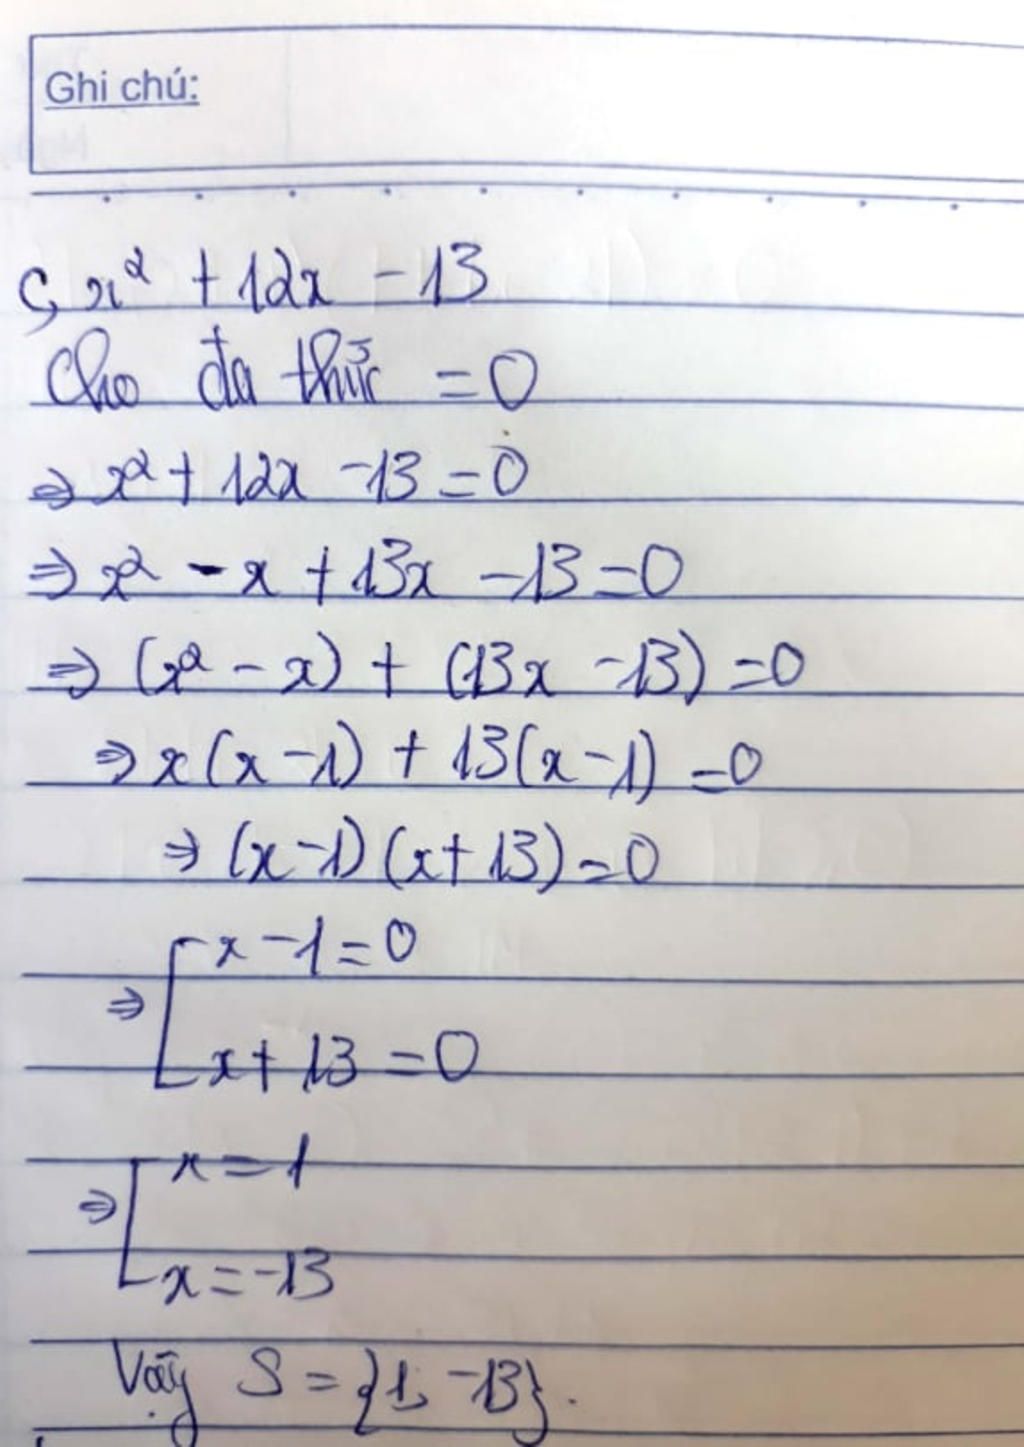 Ghi chú:
c, x² + 12x - 13
Cho đa thức = 0
⇒ x² + 12x - 13 = 0
⇒ x² - x + 13x - 13 = 0
⇒ (x² - x) + (13x - 13) = 0
⇒ x(x - 1) + 13(x - 1) = 0
⇒ (x - 1)(x + 13) = 0
⇒ [ x - 1 = 0
x + 13 = 0
⇒ [ x = 1
x = -13
Vậy S = {1, -13}.